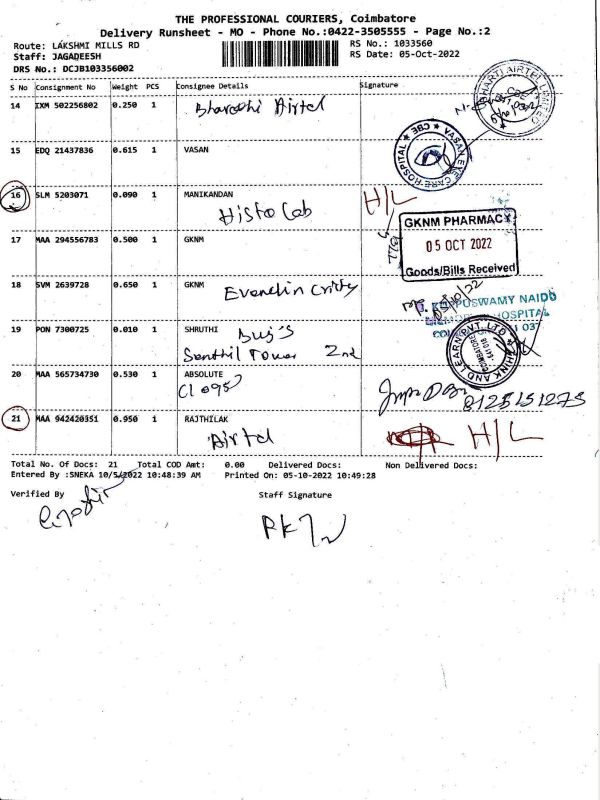 THE PROFESSIONAL COURIERS, Coimbatore
Delivery Runsheet - MO - Phone No.:0422-3505555 - Page No.:2
Route: LAKSHMI MILLS RD
RS No.: 1033560
Staff: JAGADEESH
RS Date: 05-Oct-2022
DRS No.: DCJB103356002
S No Consignment No Weight PCS Consignee Details Signature
14 IXM 502256802 0.250 1 Bharathi Airtel
BHARTI AIRTEL LIMITED
CBE
15 EDQ 21437836 0.615 1 VASAN
VASAN EYE CARE HOSPITAL ★ CBE ★
16 SLM 5203071 0.090 1 MANIKANDAN H/L
Histo Lab
GKNM PHARMACY
05 OCT 2022
Goods/Bills Received
17 MAA 294556783 0.500 1 GKNM
18 SVM 2639728 0.650 1 GKNM
KUPPUSWAMY NAIDU
HOSPITAL
19 PON 7300725 0.010 1 SHRUTHI
Senthil Tower 2nd
THINK AND LEARN PVT. LTD
20 MAA 565734730 0.530 1 ABSOLUTE
8125151275
21 MAA 942420351 0.950 1 RAJTHILAK
Airtel H/L
Total No. Of Docs: 21 Total COD Amt: 0.00 Delivered Docs: Non Delivered Docs:
Entered By :SNEKA 10/5/2022 10:48:39 AM Printed On: 05-10-2022 10:49:28
Verified By Staff Signature